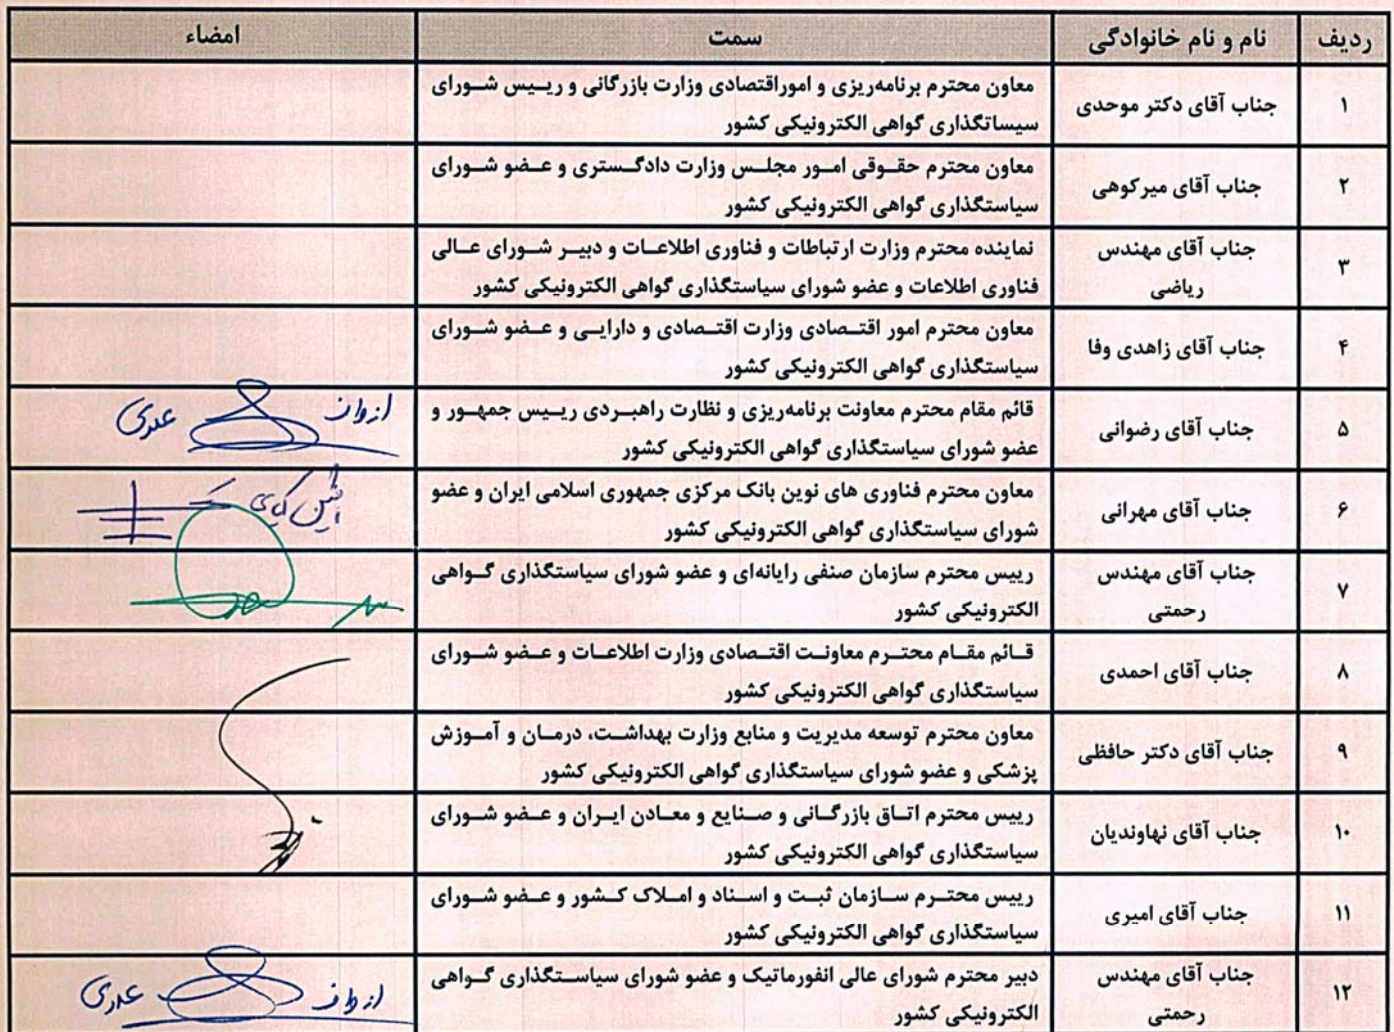 ردیف نام و نام خانوادگی سمت امضاء
۱ جناب آقای دکتر موحدی معاون محترم برنامه‌ریزی و اموراقتصادی وزارت بازرگانی و رییس شورای
سیساتگذاری گواهی الکترونیکی کشور
۲ جناب آقای میرکوهی معاون محترم حقوقی امور مجلس وزارت دادگستری و عضو شورای
سیاستگذاری گواهی الکترونیکی کشور
۳ جناب آقای مهندس نماینده محترم وزارت ارتباطات و فناوری اطلاعات و دبیر شورای عالی
ریاضی فناوری اطلاعات و عضو شورای سیاستگذاری گواهی الکترونیکی کشور
۴ جناب آقای زاهدی وفا معاون محترم امور اقتصادی وزارت اقتصادی و دارایی و عضو شورای
سیاستگذاری گواهی الکترونیکی کشور
۵ جناب آقای رضوانی قائم مقام محترم معاونت برنامه‌ریزی و نظارت راهبردی رییس جمهور و
عضو شورای سیاستگذاری گواهی الکترونیکی کشور
۶ جناب آقای مهرانی معاون محترم فناوری های نوین بانک مرکزی جمهوری اسلامی ایران و عضو
شورای سیاستگذاری گواهی الکترونیکی کشور
۷ جناب آقای مهندس رییس محترم سازمان صنفی رایانه‌ای و عضو شورای سیاستگذاری گواهی
رحمتی الکترونیکی کشور
۸ جناب آقای احمدی قائم مقام محترم معاونت اقتصادی وزارت اطلاعات و عضو شورای
سیاستگذاری گواهی الکترونیکی کشور
۹ جناب آقای دکتر حافظی معاون محترم توسعه مدیریت و منابع وزارت بهداشت، درمان و آموزش
پزشکی و عضو شورای سیاستگذاری گواهی الکترونیکی کشور
۱۰ جناب آقای نهاوندیان رییس محترم اتاق بازرگانی و صنایع و معادن ایران و عضو شورای
سیاستگذاری گواهی الکترونیکی کشور
۱۱ جناب آقای امیری رییس محترم سازمان ثبت و اسناد و املاک کشور و عضو شورای
سیاستگذاری گواهی الکترونیکی کشور
۱۲ جناب آقای مهندس دبیر محترم شورای عالی انفورماتیک و عضو شورای سیاستگذاری گواهی
رحمتی الکترونیکی کشور